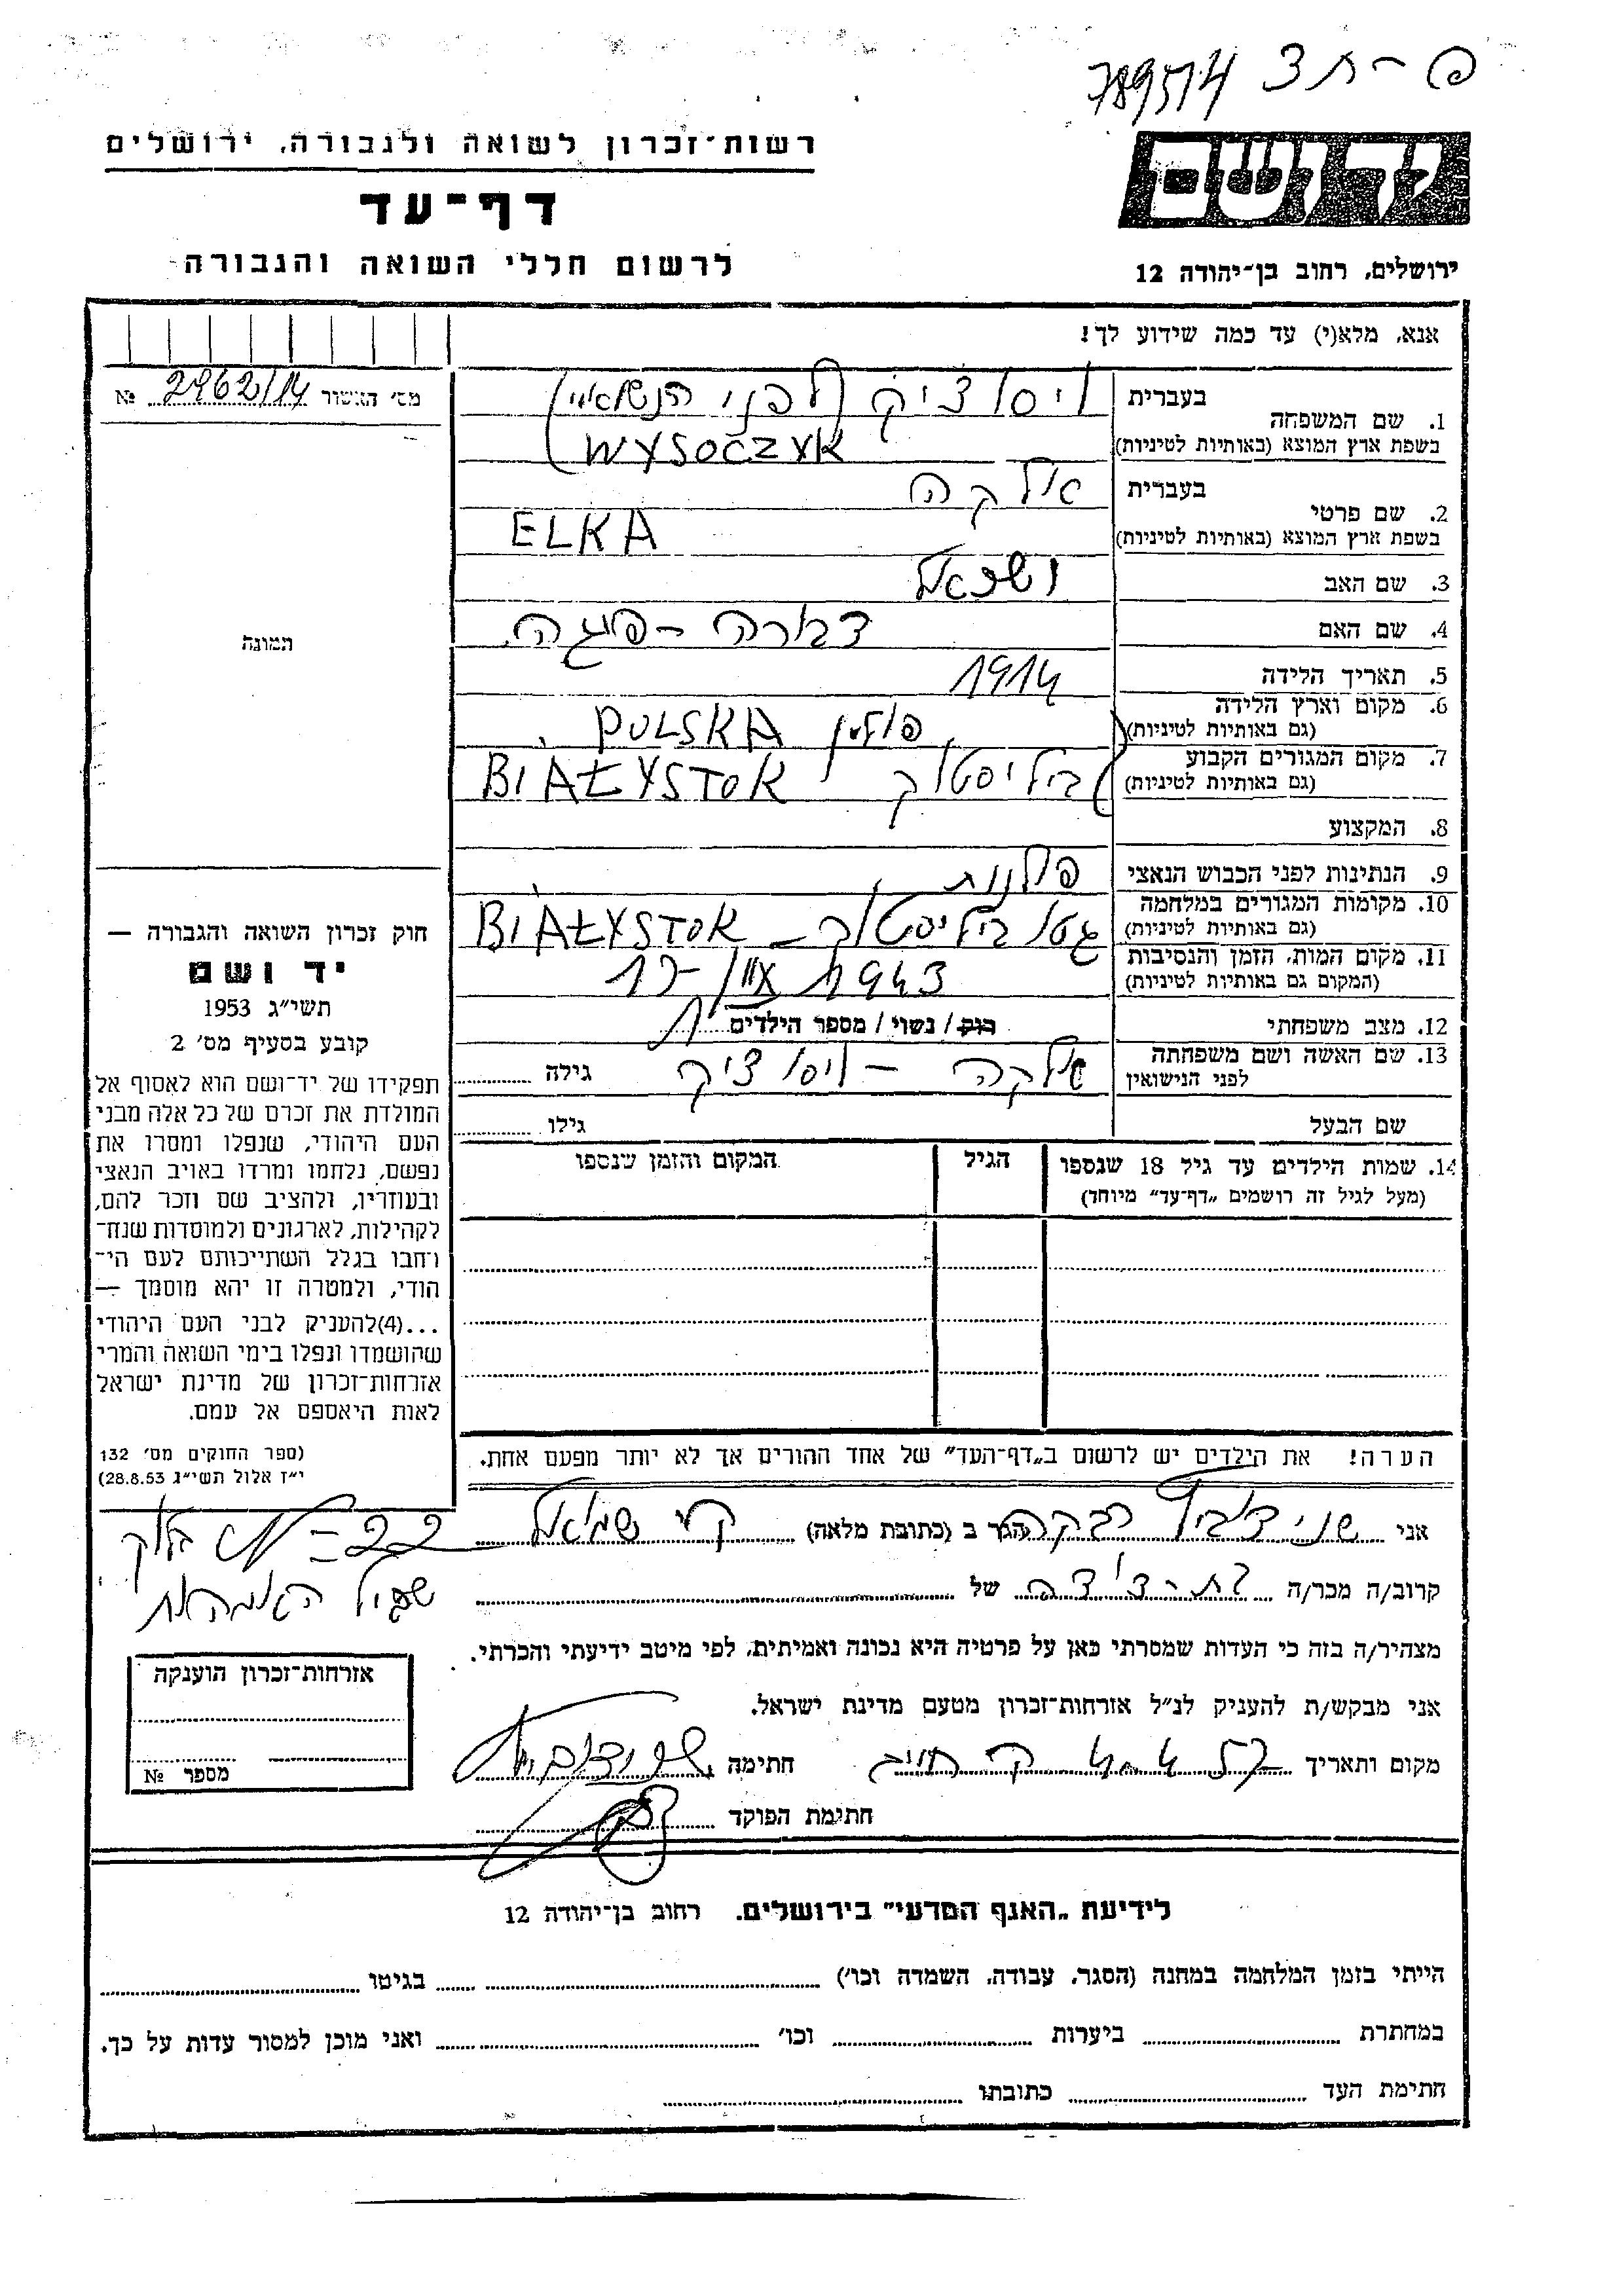 פ - ת 3 789514
יד ושם
רשות-זכרון לשואה ולגבורה, ירושלים
דף-עד
ירושלים, רחוב בן-יהודה 12
לרשום חללי השואה והגבורה
אנא, מלא(י) עד כמה שידוע לך!
מס' האשור 2962/14 №
תמונה
1. שם המשפחה
בעברית ויסוציק (לפני הנשואין)
בשפת ארץ המוצא (באותיות לטיניות) WYSOCZYK
2. שם פרטי
בעברית אלקה
בשפת ארץ המוצא (באותיות לטיניות) ELKA
3. שם האב ישראל
4. שם האם דבורה - פייגה
5. תאריך הלידה 1914
6. מקום וארץ הלידה
(גם באותיות לטיניות) פולין POLSKA
7. מקום המגורים הקבוע
(גם באותיות לטיניות) ביליסטוק BIAŁYSTOK
8. המקצוע
9. הנתינות לפני הכבוש הנאצי פולנית
10. מקומות המגורים במלחמה
(גם באותיות לטיניות) גטו ביליסטוק - BIAŁYSTOK
11. מקום המות, הזמן והנסיבות
(המקום גם באותיות לטיניות) 1943
12. מצב משפחתי רוק / נשוי / מספר הילדים 1
13. שם האשה ושם משפחתה
לפני הנישואין אלקה - ויסוציק גילה
שם הבעל גילו
14. שמות הילדים עד גיל 18 שנספו
(מעל לגיל זה רושמים „דף-עד" מיוחד)
הגיל
המקום והזמן שנספו
הערה! את הילדים יש לרשום ב„דף-העד" של אחד ההורים אך לא יותר מפעם אחת.
חוק זכרון השואה והגבורה —
יד ושם
תשי"ג 1953
קובע בסעיף מס' 2
תפקידו של יד-ושם הוא לאסוף אל
המולדת את זכרם של כל אלה מבני
העם היהודי, שנפלו ומסרו את
נפשם, נלחמו ומרדו באויב הנאצי
ובעוזריו, ולהציב שם וזכר להם,
לקהילות, לארגונים ולמוסדות שנח-
רחבו בגלל השתייכותם לעם הי-
הודי, ולמטרה זו יהא מוסמך —
...(4)להעניק לבני העם היהודי
שהושמדו ונפלו בימי השואה והמרי
אזרחות-זכרון של מדינת ישראל
לאות היאספם אל עמם.
(ספר החוקים מס' 132
י"ז אלול תשי"ג 28.8.53)
אני רבקה הגר ב (כתובת מלאה) קרית שמואל
קרוב/ה מכר/ה בת-דודה של
מצהיר/ה בזה כי העדות שמסרתי כאן על פרטיה היא נכונה ואמיתית, לפי מיטב ידיעתי והכרתי.
אני מבקש/ת להעניק לנ"ל אזרחות-זכרון מטעם מדינת ישראל.
מקום ותאריך חתימה
חתימת הפוקד
אזרחות-זכרון הוענקה
מספר №
לידיעת „האגף המדעי" בירושלים, רחוב בן-יהודה 12
הייתי בזמן המלחמה במחנה (הסגר, עבודה, השמדה וכו') בגיטו
במחתרת ביערות וכו' ואני מוכן למסור עדות על כך.
חתימת העד כתובתו